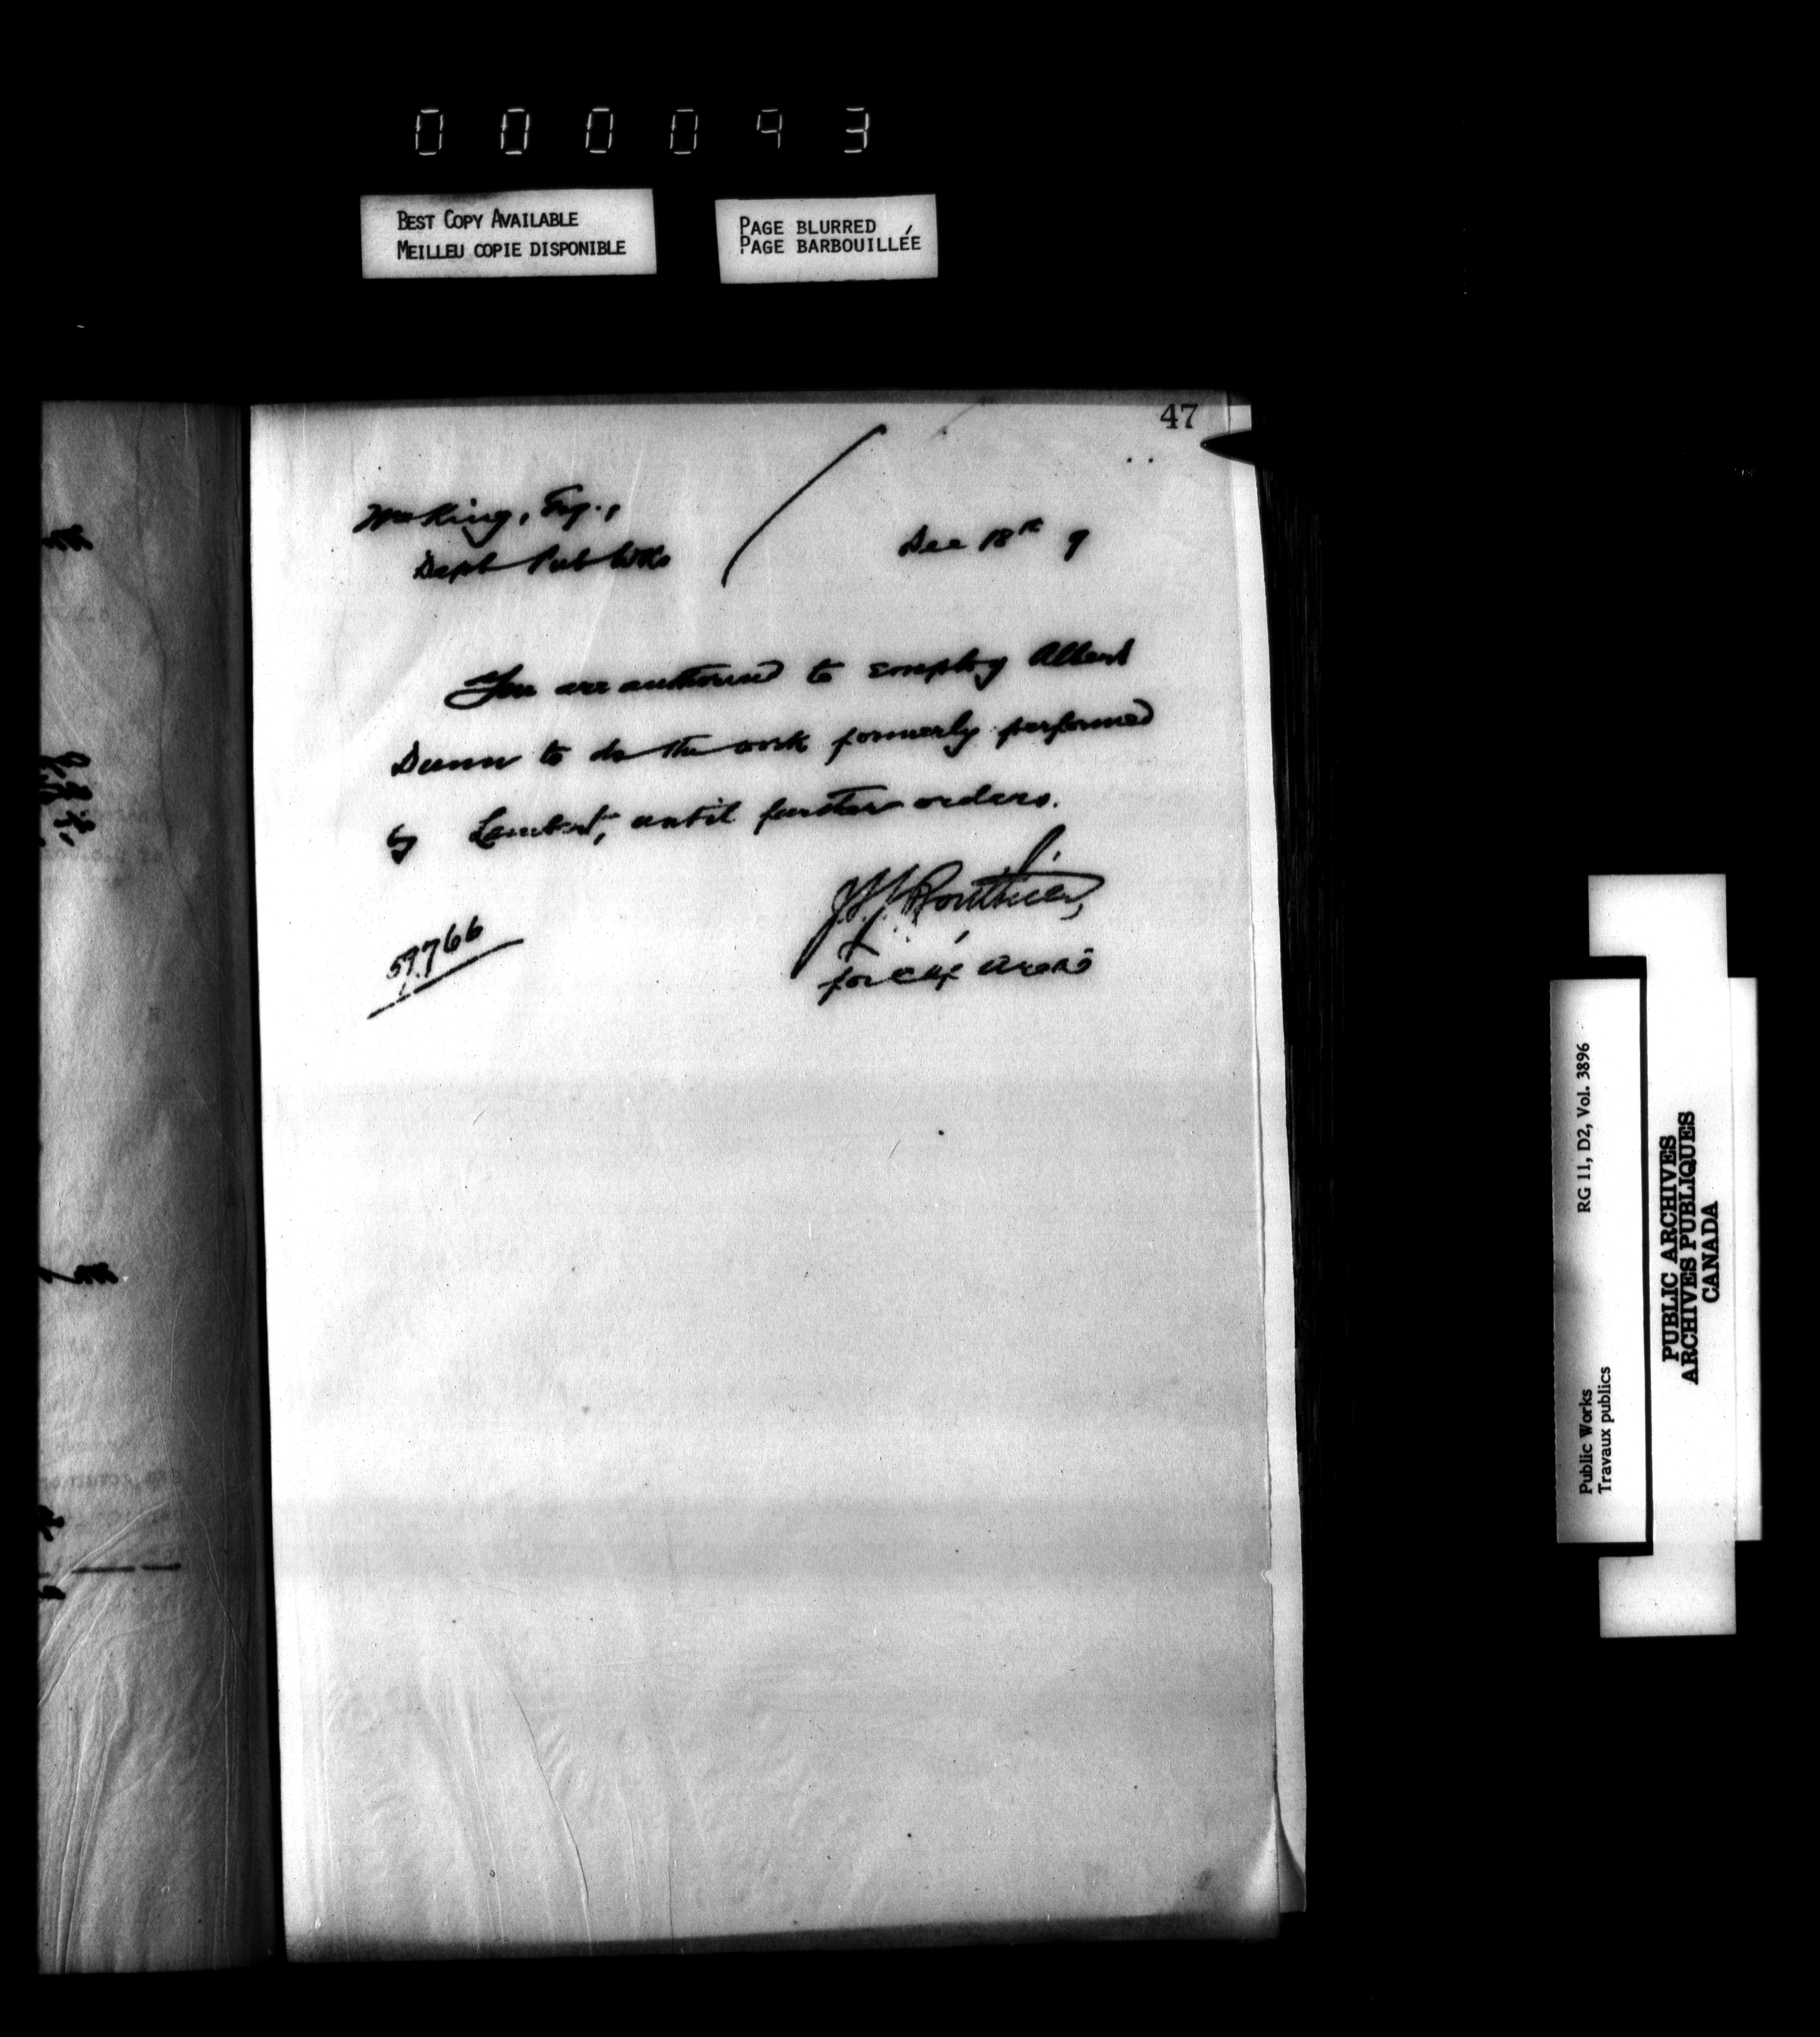 000043
BEST COPY AVAILABLE
MEILLEU COPIE DISPONIBLE
PAGE BLURRED
PAGE BARBOUILLÉE
47
Wm King, Esq.,
Dept Pub Wks
Dec 18th 9
You are authorised to employ Albert
Dunn to do the work formerly performed
by Lambert, until further orders.
for Chf Arch
59766
Public Works
Travaux publics
RG 11, D2, Vol. 3896
PUBLIC ARCHIVES
ARCHIVES PUBLIQUES
CANADA